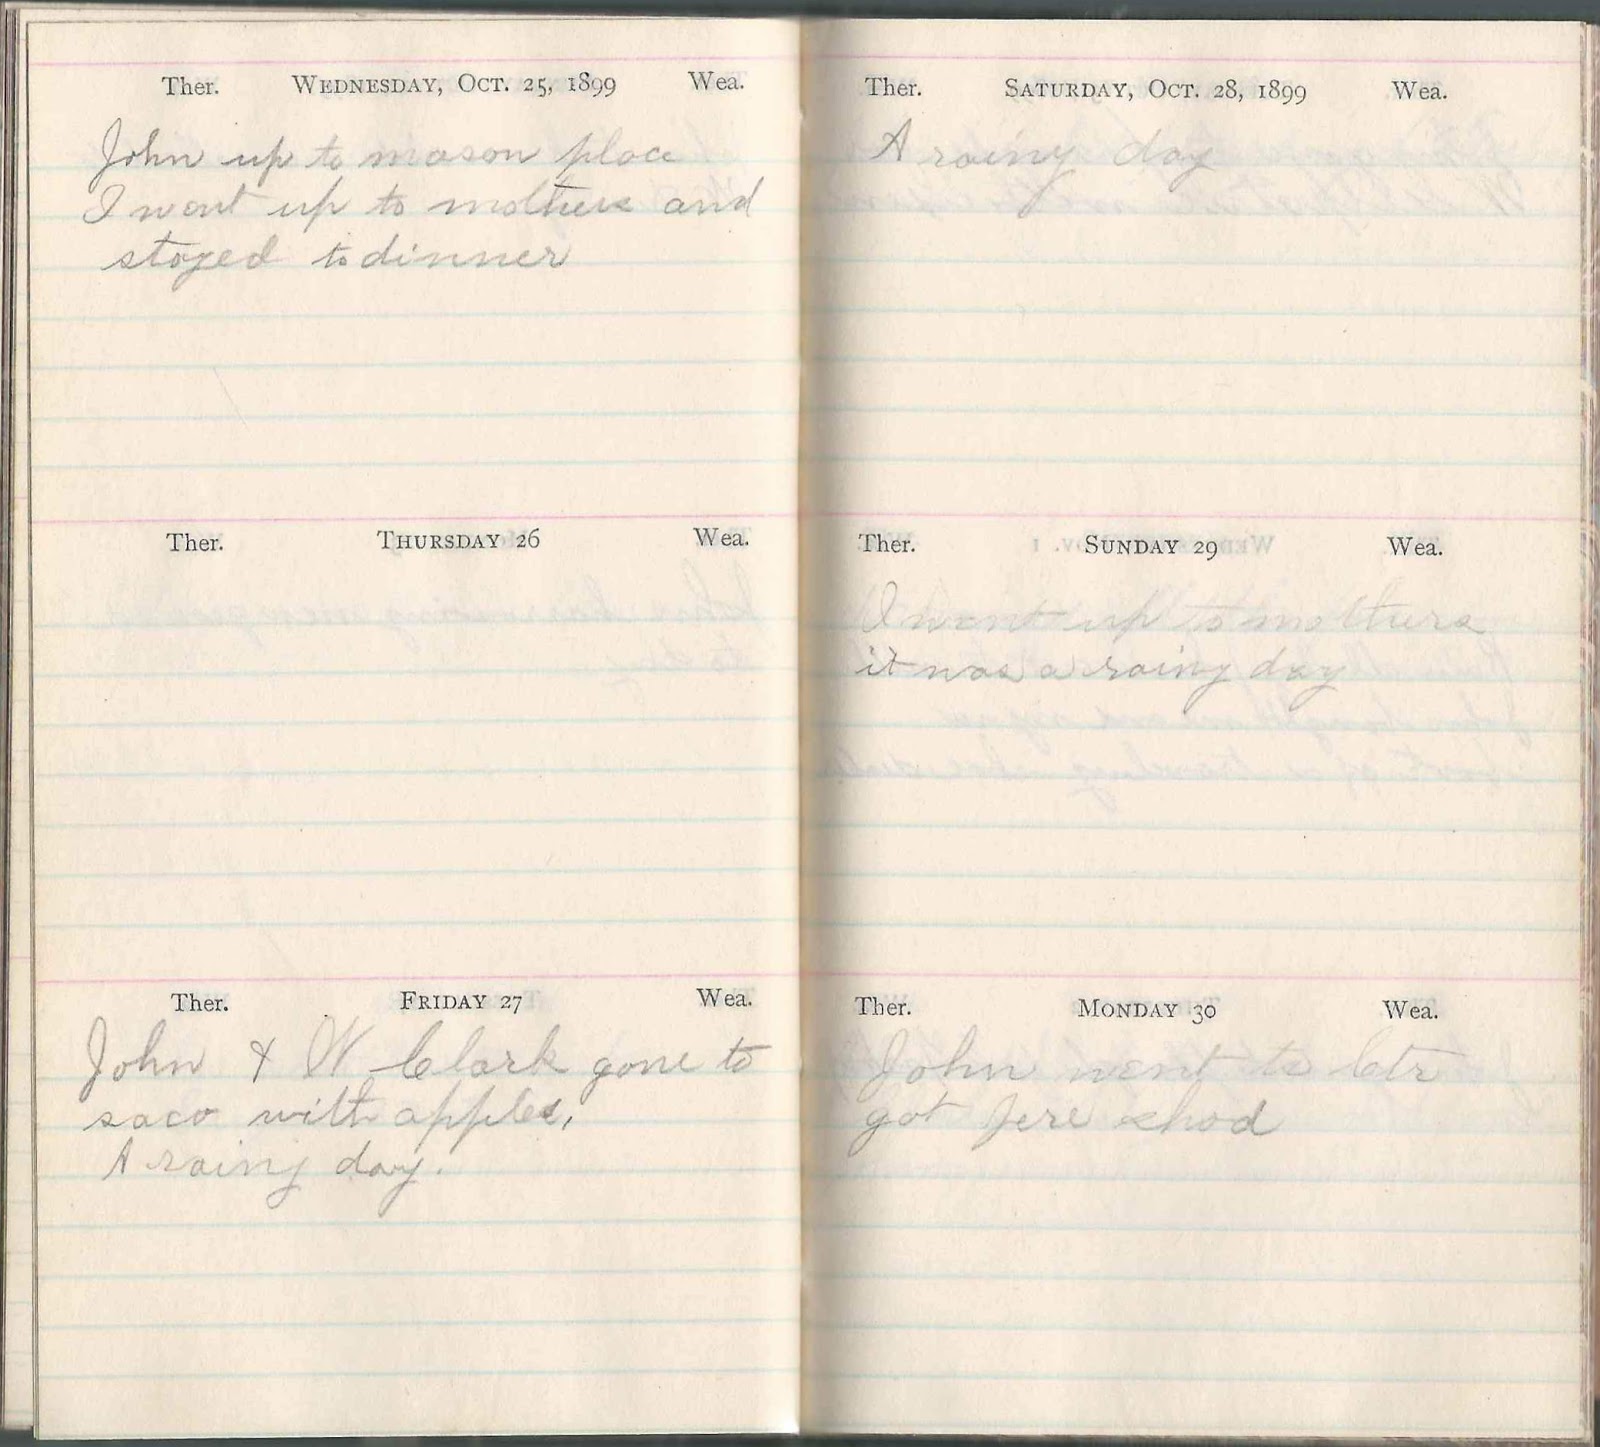 Ther. WEDNESDAY, OCT. 25, 1899 Wea.
John up to mason place
I went up to mothers and
stayed to dinner
Ther. THURSDAY 26 Wea.
Ther. FRIDAY 27 Wea.
John & W Clark gone to
saco with apples,
A rainy day.
Ther. SATURDAY, OCT. 28, 1899 Wea.
A rainy day
Ther. SUNDAY 29 Wea.
I went up to mothers
it was a rainy day
Ther. MONDAY 30 Wea.
John went to Ctr
got Jere shod